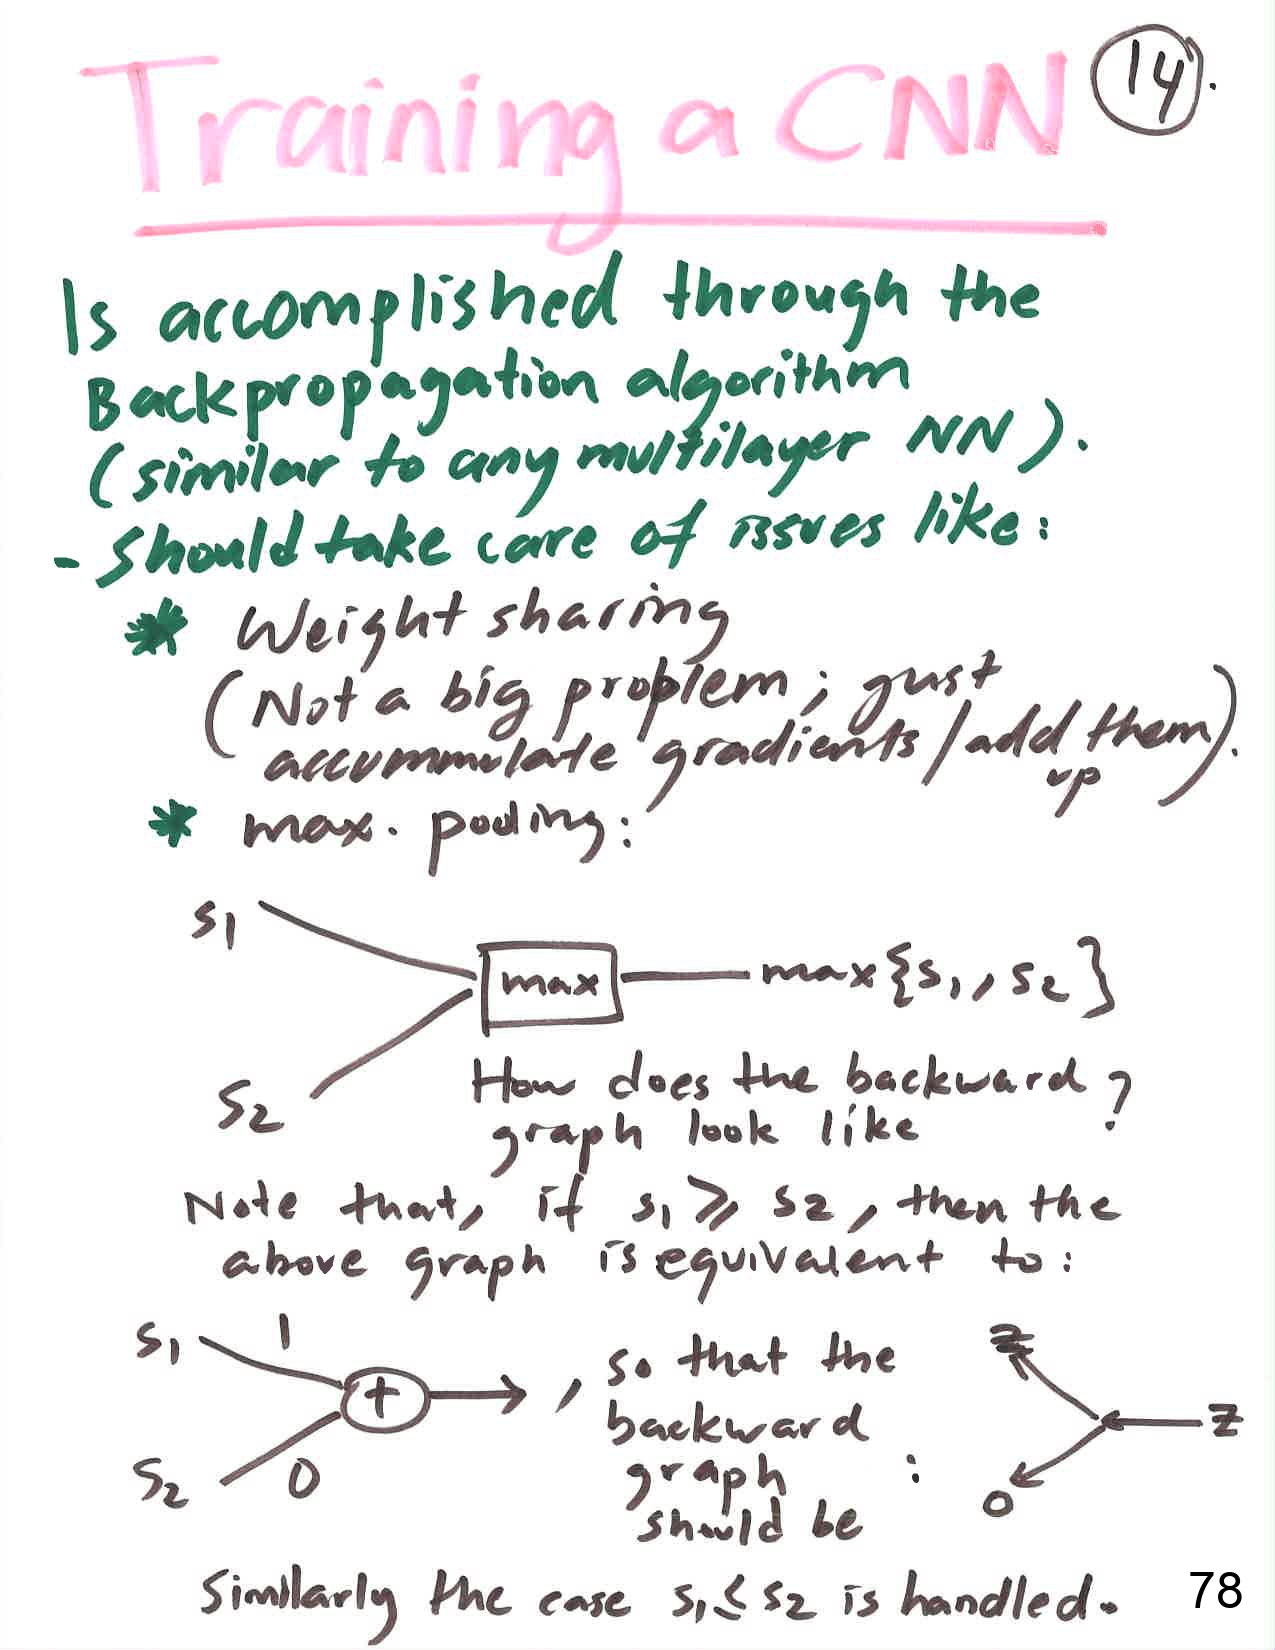 Training a CNN 14.
Is accomplished through the
Backpropagation algorithm
(similar to any multilayer NN).
- Should take care of issues like:
* Weight sharing
(Not a big problem; gust
accummulate gradients/add them).
up
* max. pooling:
s1
max
max{s1, s2}
s2
How does the backward
graph look like ?
Note that, if s1 ≥ s2, then the
above graph is equivalent to:
s1 1
+
, so that the
backward
graph :
should be
s2 0
z
z
0
Similarly the case s1 ≤ s2 is handled.
78